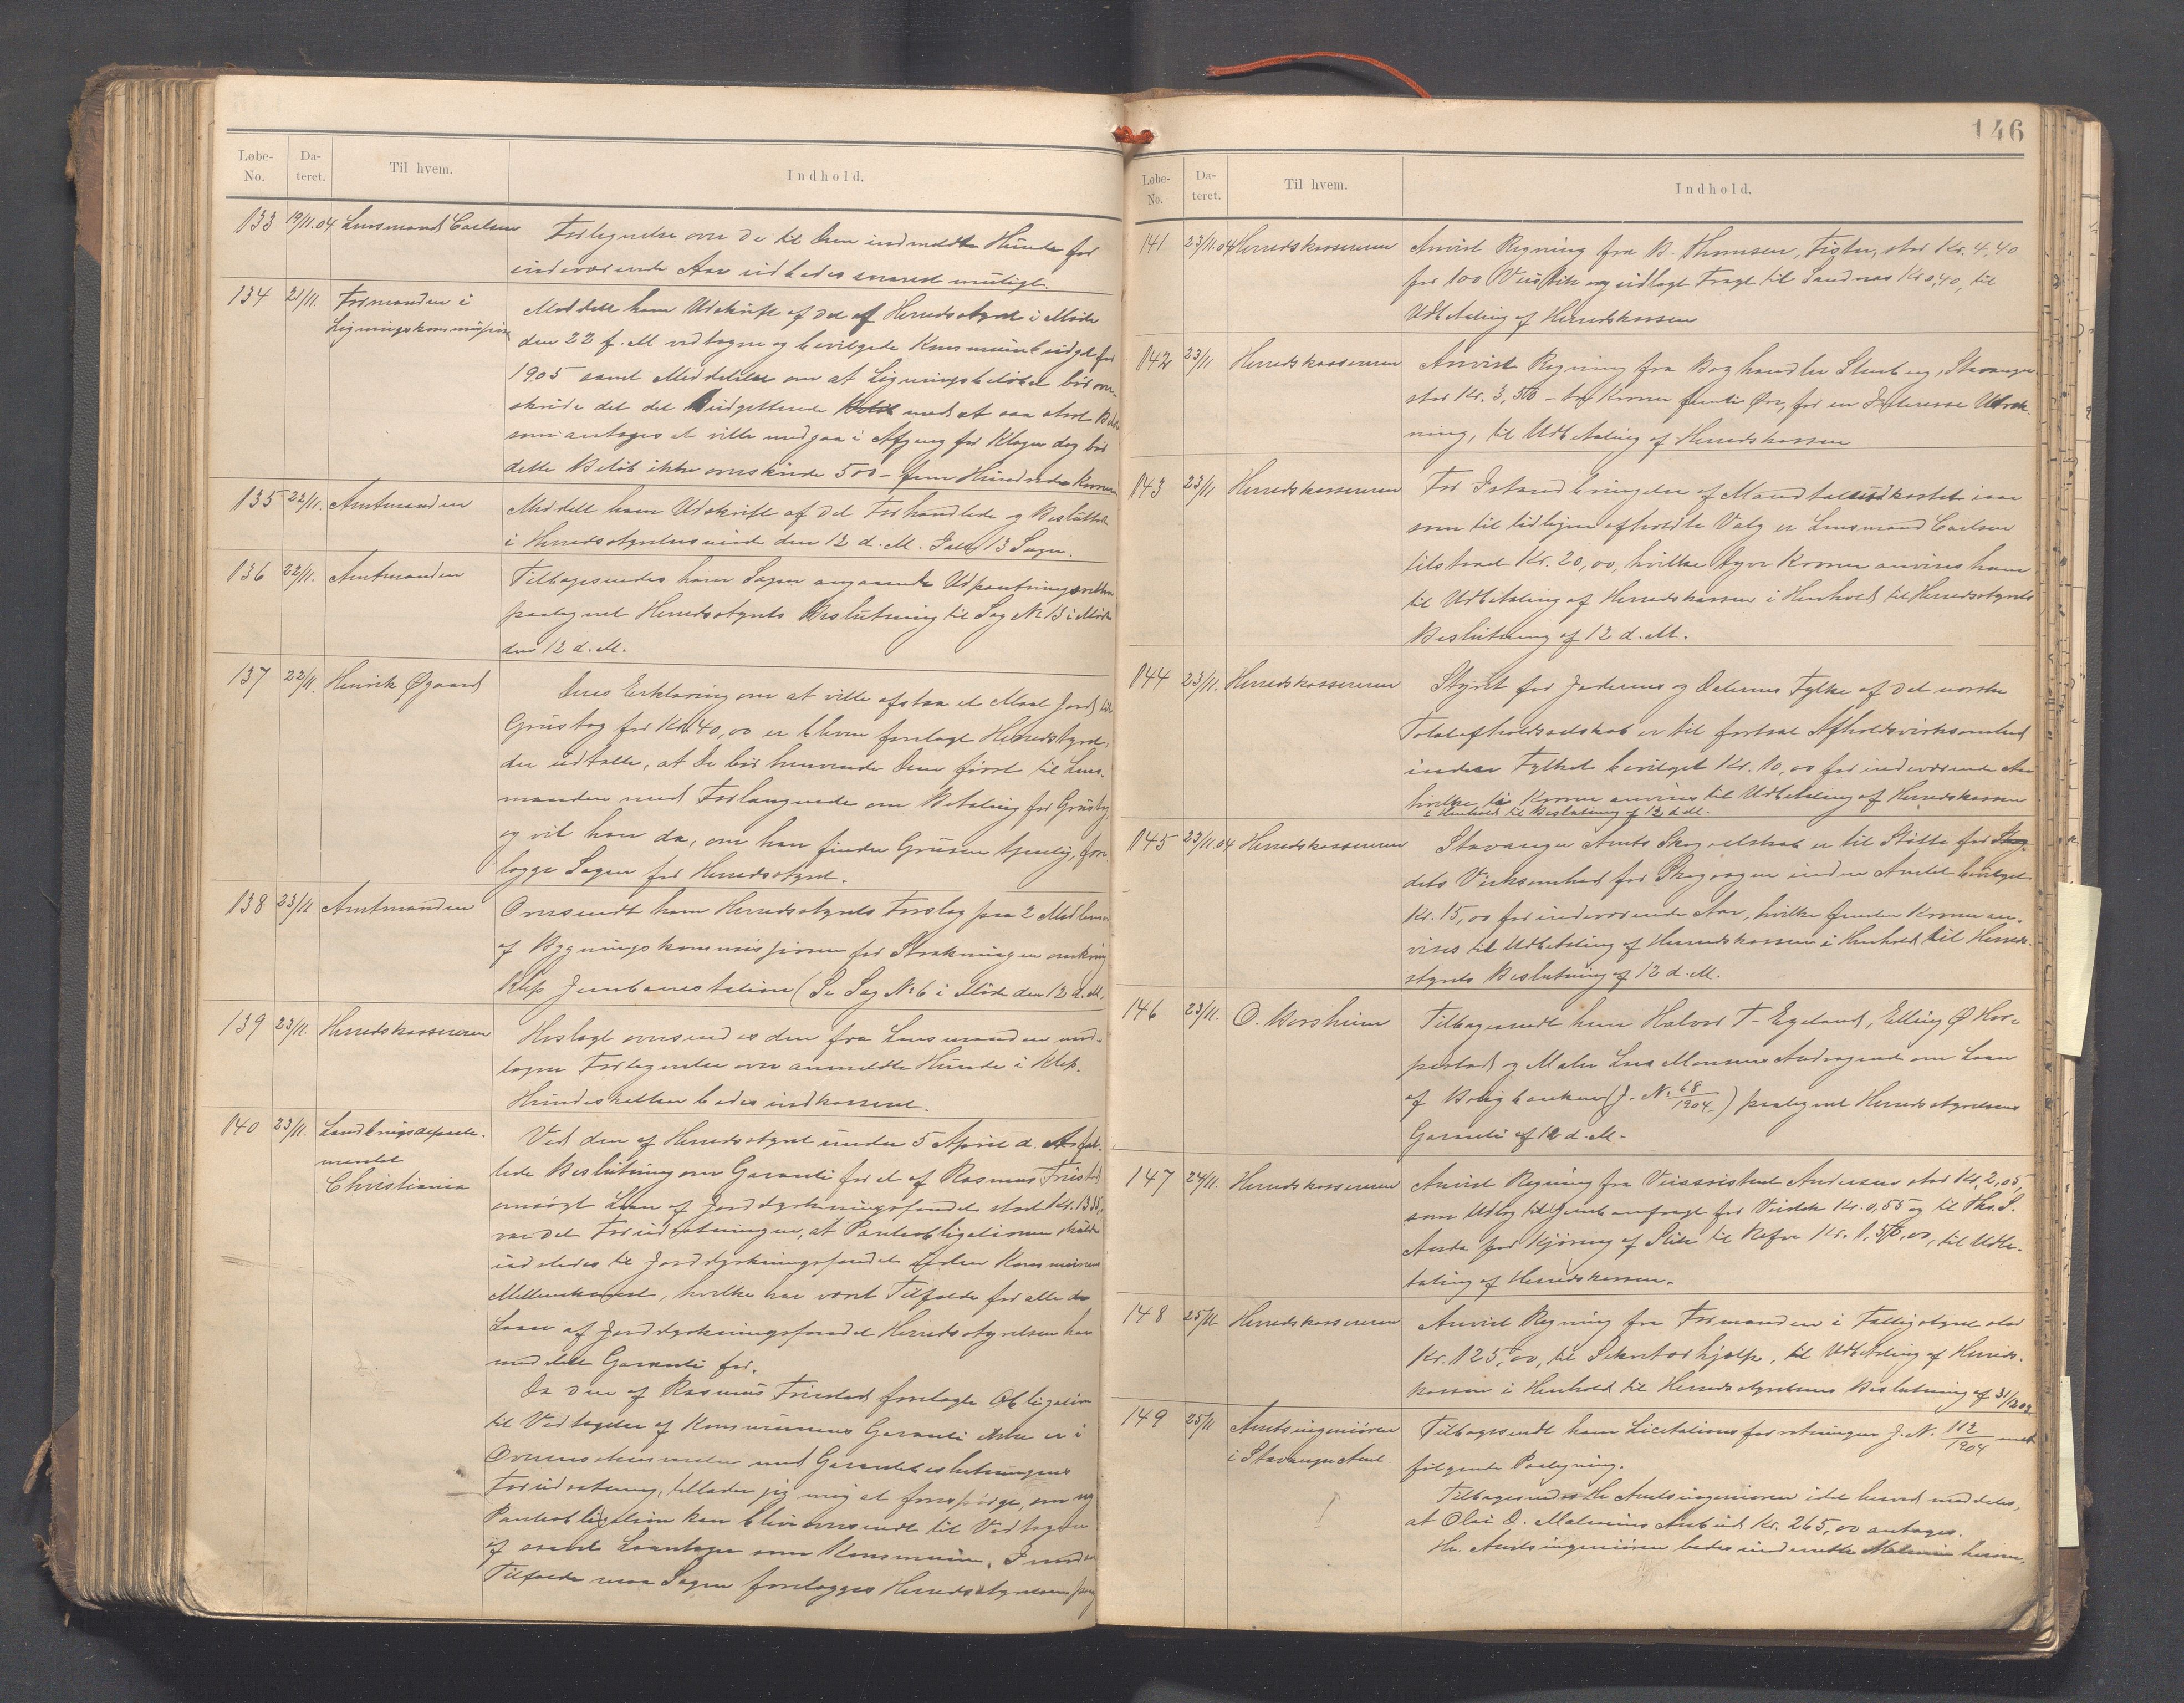 Løbe-No. Da-teret. Til hvem. Indhold.
133 19/11.04 Lensmand Carlsen Fortegnelse over de til Dem indmeldte Hunde for
indeværende Aar udbedes snarest muligt.
134 21/11. Formanden i Ligningskommissionen Meddelt ham Udskrift af det af Herredsstyret i Møde
den 22 f. M vedtagne og bevilgede Kommunebudget for
1905 samt Meddelelse om at Ligningsbeløbet bør over-
skride det det Budgetterede med et saa stort Beløb
som antages at ville medgaa i Afgang for Klager dog bør
dette Beløb ikke overskride 500 – fem Hundrede Kroner
135 22/11. Amtmanden Meddelt ham Udskrift af det Forhandlede og Besluttede
i Herredsstyrelsesmøde den 12 d. M. Ialt 13 Sager.
136 22/11. Amtmanden Tilbagesendes ham Sagen angaaende Udpantningsretten
paategnet Herredsstyrets Beslutning til Sag No 13 i Møde
den 12 d. M.
137 22/11. Henrik Øgaard Deres Erklæring om at ville afstaa et Maal Jord til
Grustag for Kr. 40,00 er bleven forelagt Herredsstyret,
der udtalte, at De bør henvende Dem først til Lens-
manden med Forlangende om Betaling for Grustag
og vil han da, om han finder Grusen tjenlig, fore-
lægge Sagen for Herredsstyret.
138 23/11 Amtmanden Oversendt ham Herredsstyrets Forslag paa 2 Medlemmer
af Bygningskommissionen for Strækningen omkring
Klep Jernbanestation (Se Sag No 6 i Møde den 12 d. M.
139 23/11. Herredskassereren Hoslagt oversendes den fra Lensmanden mod-
tagne Fortegnelse over anmeldte Hunde i Klep.
Hundeskatten bedes indkasseret.
140 23/11. Landbrugsdeparte-
mentet
Christiania
Ved den af Herredsstyret under 5 April d. A fat-
tede Beslutning om Garanti for et af Rasmus Friestad
ansøgt Laan af Jorddyrkningsfondet stort Kr.
var det Forudsætningen, at Pantobligationen skulde
udstedes til Jorddyrkningsfondet uden Kommunens
Mellemkomst, hvilke har været Tilfælde for alle de
Laan af Jorddyrkningsfondet Herredsstyrelsen har
meddelt Garanti for.
Da den af Rasmus Friestad forelagte Obligation
til Vedtagelse af Kommunens Garanti ikke er i
Overensstemmelse med Garantibeslutningens
Forudsætning, tillader jeg mig at forespørge, om ny
Pantobligation kan blive oversendt til Vedtagelse
af saavel Laantager som Kommunen. I modsat
Tilfælde maa Sagen forelægges Herredsstyrelsen paa
146
Løbe-No. Da-teret. Til hvem. Indhold.
141 23/11.04 Herredskassereren Anvist Regning fra B. Thomsen, Fister, stor Kr. 4,40
for 100 Veistik og udlagt Fragt til Sandnæs Kr 0,40, til
Udbetaling af Herredskassen
142 23/11 Herredskassereren Anvist Regning fra Boghandler Stenberg, Stavanger
stor Kr. 3,50 – tre Kroner femti Øre, for en
ning, til Udbetaling af Herredskassen
143 23/11 Herredskassereren For Istandbringelse af Mandtalsudkastet iaar
som til tidligere afholdte Valg er Lensmand Carlsen
tilstaaet Kr. 20,00, hvilke tyve Kroner anvises ham
til Udbetaling af Herredskassen i Henhold til Herredsstyrets
Beslutning af 12 d. M.
144 23/11. Herredskassereren Styret for Jæderens og Dalernes Fylke af det norske
Totalafholdsselskab er til fortsat Afholdsvirksomhed
inden Fylket bevilget Kr. 10,00 for indeværende Aar
hvilke ti Kroner anvises til Udbetaling af Herredskassen
i Henhold til Beslutning af 12 d. M.
145 23/11.04 Herredskassereren Stavanger Amts Skogselskab er til Støtte for Skog-
dets Virksomhed for Skogsagen inden Amtet bevilget
Kr. 15,00 for indeværende Aar, hvilke femten Kroner an-
vises til Udbetaling af Herredskassen i Henhold til Herreds-
styrets Beslutning af 12 d. M.
146 23/11. O. Borsheim Tilbagesendt ham Halvor T. Egeland, Elling Ø Hor-
pestad og Maler Monsens Andragende om Laan
af Boligbanken (J. No 68/1904) paategnet Herredsstyrelsens
Garanti af 12 d. M.
147 24/11. Herredskassereren Anvist Regning fra Veiassistent Andersen stor Kr. 2,05,
som Udlæg til Jernbanefragt for Veistik Kr. 0,55 og til Ths. S.
Anda for Kjøring af Stik til Refve Kr. 1,50, til Udbe-
taling af Herredskassen.
148 25/11 Herredskassereren Anvist Regning fra Formanden i Fattigstyret stor
Kr. 125,00, til Sekretærhjælp, til Udbetaling af Herreds-
kassen i Henhold til Herredsstyrelsens Beslutning af 31/12 03
149 25/11 Amtsingeniøren
i Stavanger Amt.
Tilbagesendt ham Licitationsforretningen J. N. 112/1904 med
følgende Paategning.
Tilbagesendes Hr Amtsingeniøren idet herved meddeles,
at Olai O. Malmins Anbud Kr. 265,00 antages.
Hr. Amtsingeniøren bedes underrette Malmin herom,